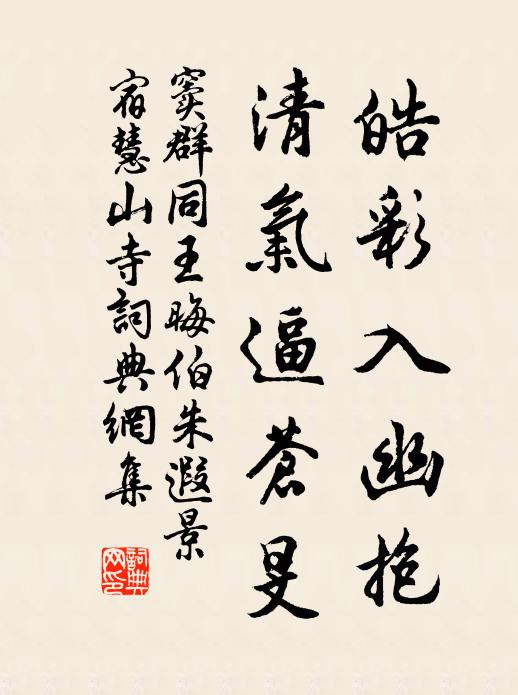 皓彩入幽抱
清氣逼蒼旻
竇群同王晦伯朱遐景
宿慧山寺詞典網集
詞典网印